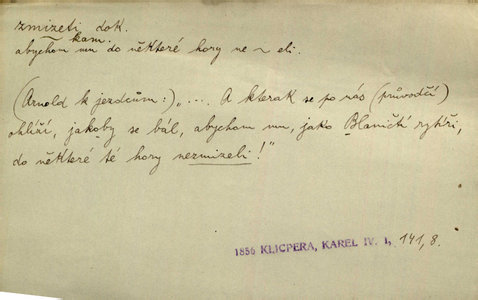 zmizeti dok.
kam.
abychom mu do některé hory ne ~ eli.
(Arnold k jezdcům:) „.... A kterak se po nás (průvodčí)
ohlíží, jakoby se bál, abychom mu, jako Blaničtí rytíři,
do některé té hory nezmizeli!"
1856 KLICPERA, KAREL IV. 1, 141, 8.